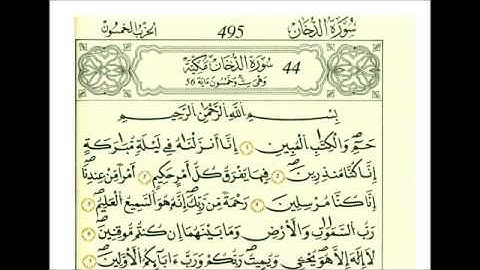 سُورَةُ الدُّخَانِ 495 الحِزْبُ الخَمْسُونَ
44 سُورَةُ الدُّخَانِ مَكِّيَّة
وَهْيَ سِتٌّ وَخَمْسُونَ ءَايَة 56
بِسْمِ اللَّهِ الرَّحْمَٰنِ الرَّحِيمِ
حَمِٓ وَالْكِتَٰبِ الْمُبِينِ 1 إِنَّآ أَنزَلْنَٰهُ فِي لَيْلَةٍ مُّبَٰرَكَةٍ
إِنَّا كُنَّا مُنذِرِينَ 2 فِيهَا يُفْرَقُ كُلُّ أَمْرٍ حَكِيمٍ 3 أَمْراً مِّنْ عِندِنَآ
إِنَّا كُنَّا مُرْسِلِينَ 4 رَحْمَةً مِّن رَّبِّكَ إِنَّهُ هُوَ السَّمِيعُ الْعَلِيمُ 5
رَبُّ السَّمَٰوَٰتِ وَالْأَرْضِ وَمَا بَيْنَهُمَآ إِن كُنتُم مُّوقِنِينَ 6
لَآ إِلَٰهَ إِلَّا هُوَ يُحْيِۦ وَيُمِيتُ رَبُّكُمْ وَرَبُّ ءَابَآئِكُمُ الْأَوَّلِينَ 7